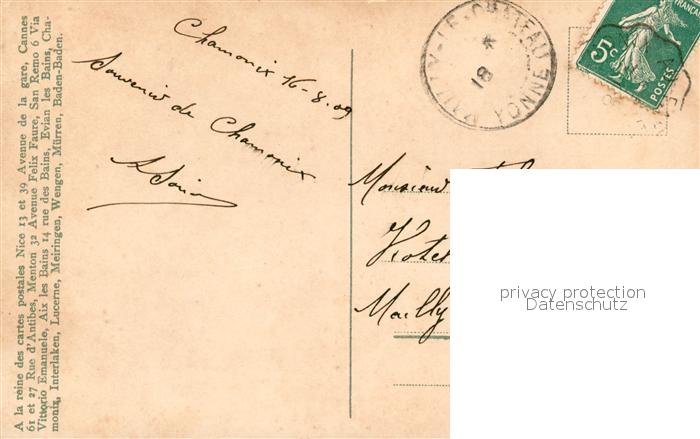 A la reine des cartes postales Nice 13 et 39 Avenue de la gare, Cannes
61 et 27 Rue d'Antibes, Menton 32 Avenue Felix Faure, San Remo 6 Via
Vittorio Emanuele, Aix les Bains 14 rue des Bains, Evian les Bains, Cha-
monix, Interlaken, Lucerne, Meiringen, Wengen, Mürren, Baden-Baden.
Chamonix 16-8.09
Souvenir de Chamonix
MAILLY-LE-CHATEAU
18
YONNE
5c
POSTES
Monsieur
Hotel
Mailly
privacy protection
Datenschutz